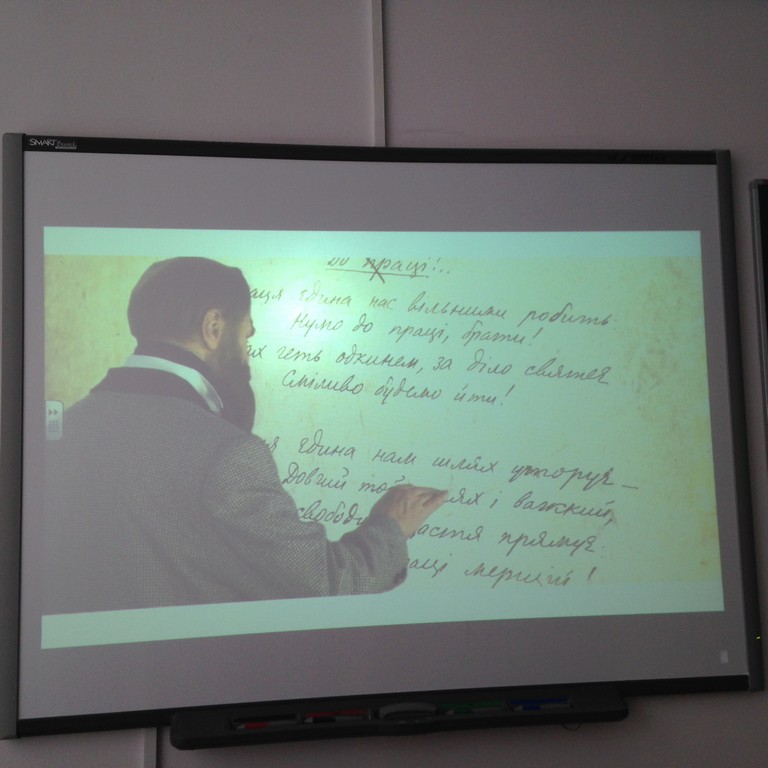 SMART Board
До праці!..
аця єдина нас вільними робить
Нумо до праці, брати!
их геть одкинем, за діло святеє
Сміливо будемо йти!
ця єдина нам шлях уторує —
Довгий той лях і важкий,
свободи астя прямує
аці мерщій!